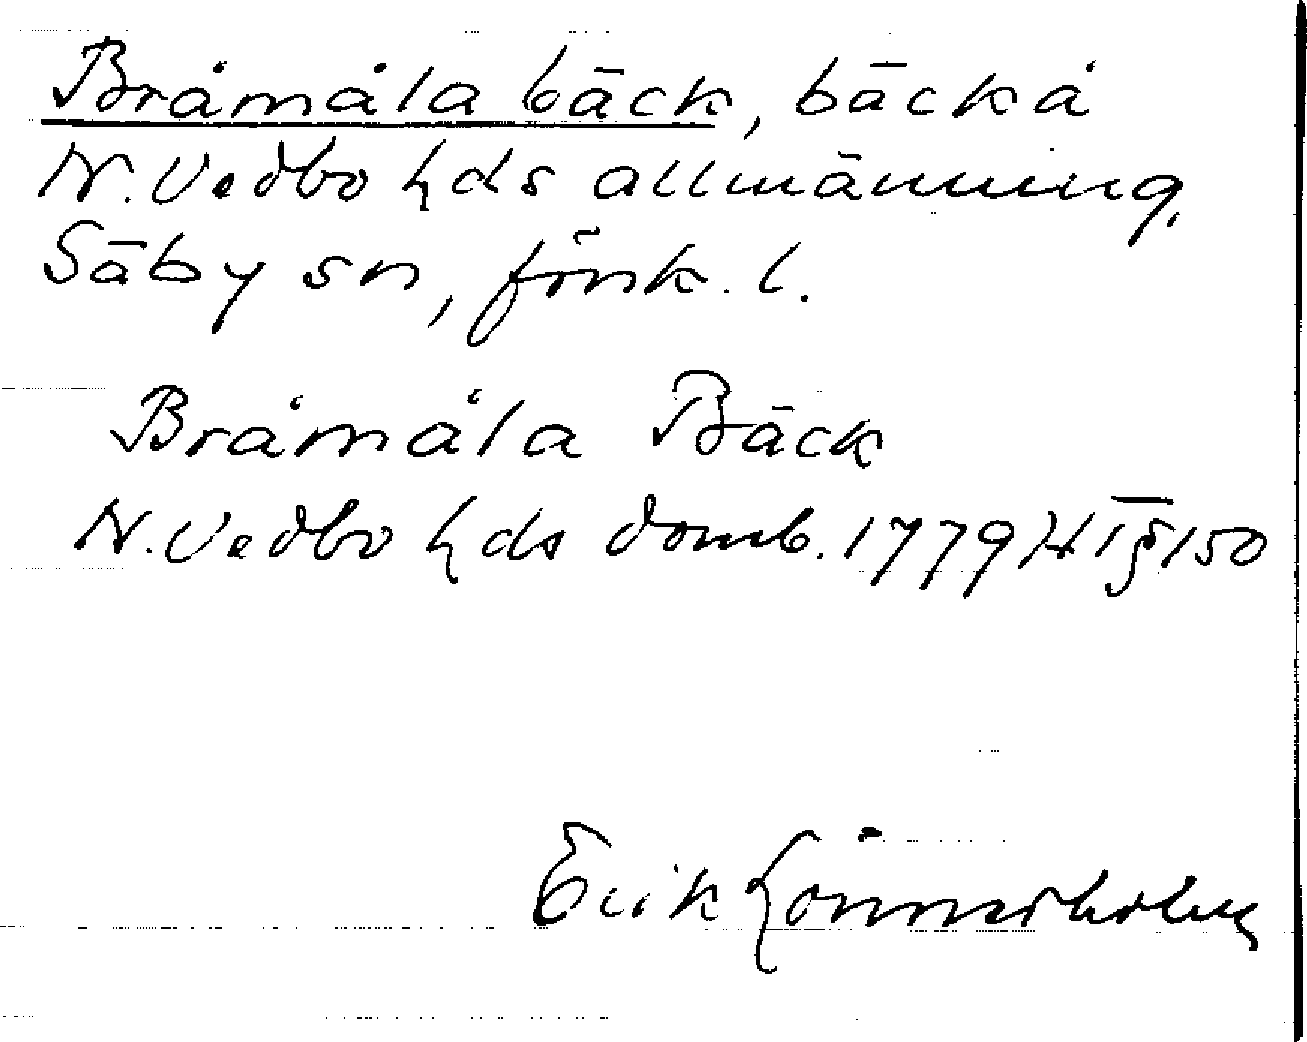 Bråmåla bäck, bäck å
N. Vedbo hds allmänning,
Säby sn, Jönk. l.
Bråmåla Bäck
N. Vedbo hds domb. 1779 Ht § 150
Erik Lönnerholm